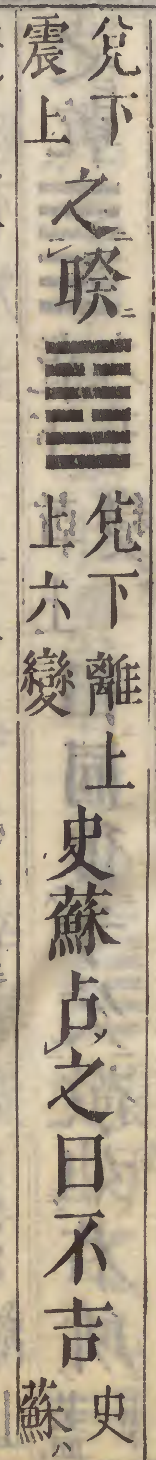 兌下震上之睽䷥兌下離上上六變史蘇占之曰不吉史蘇